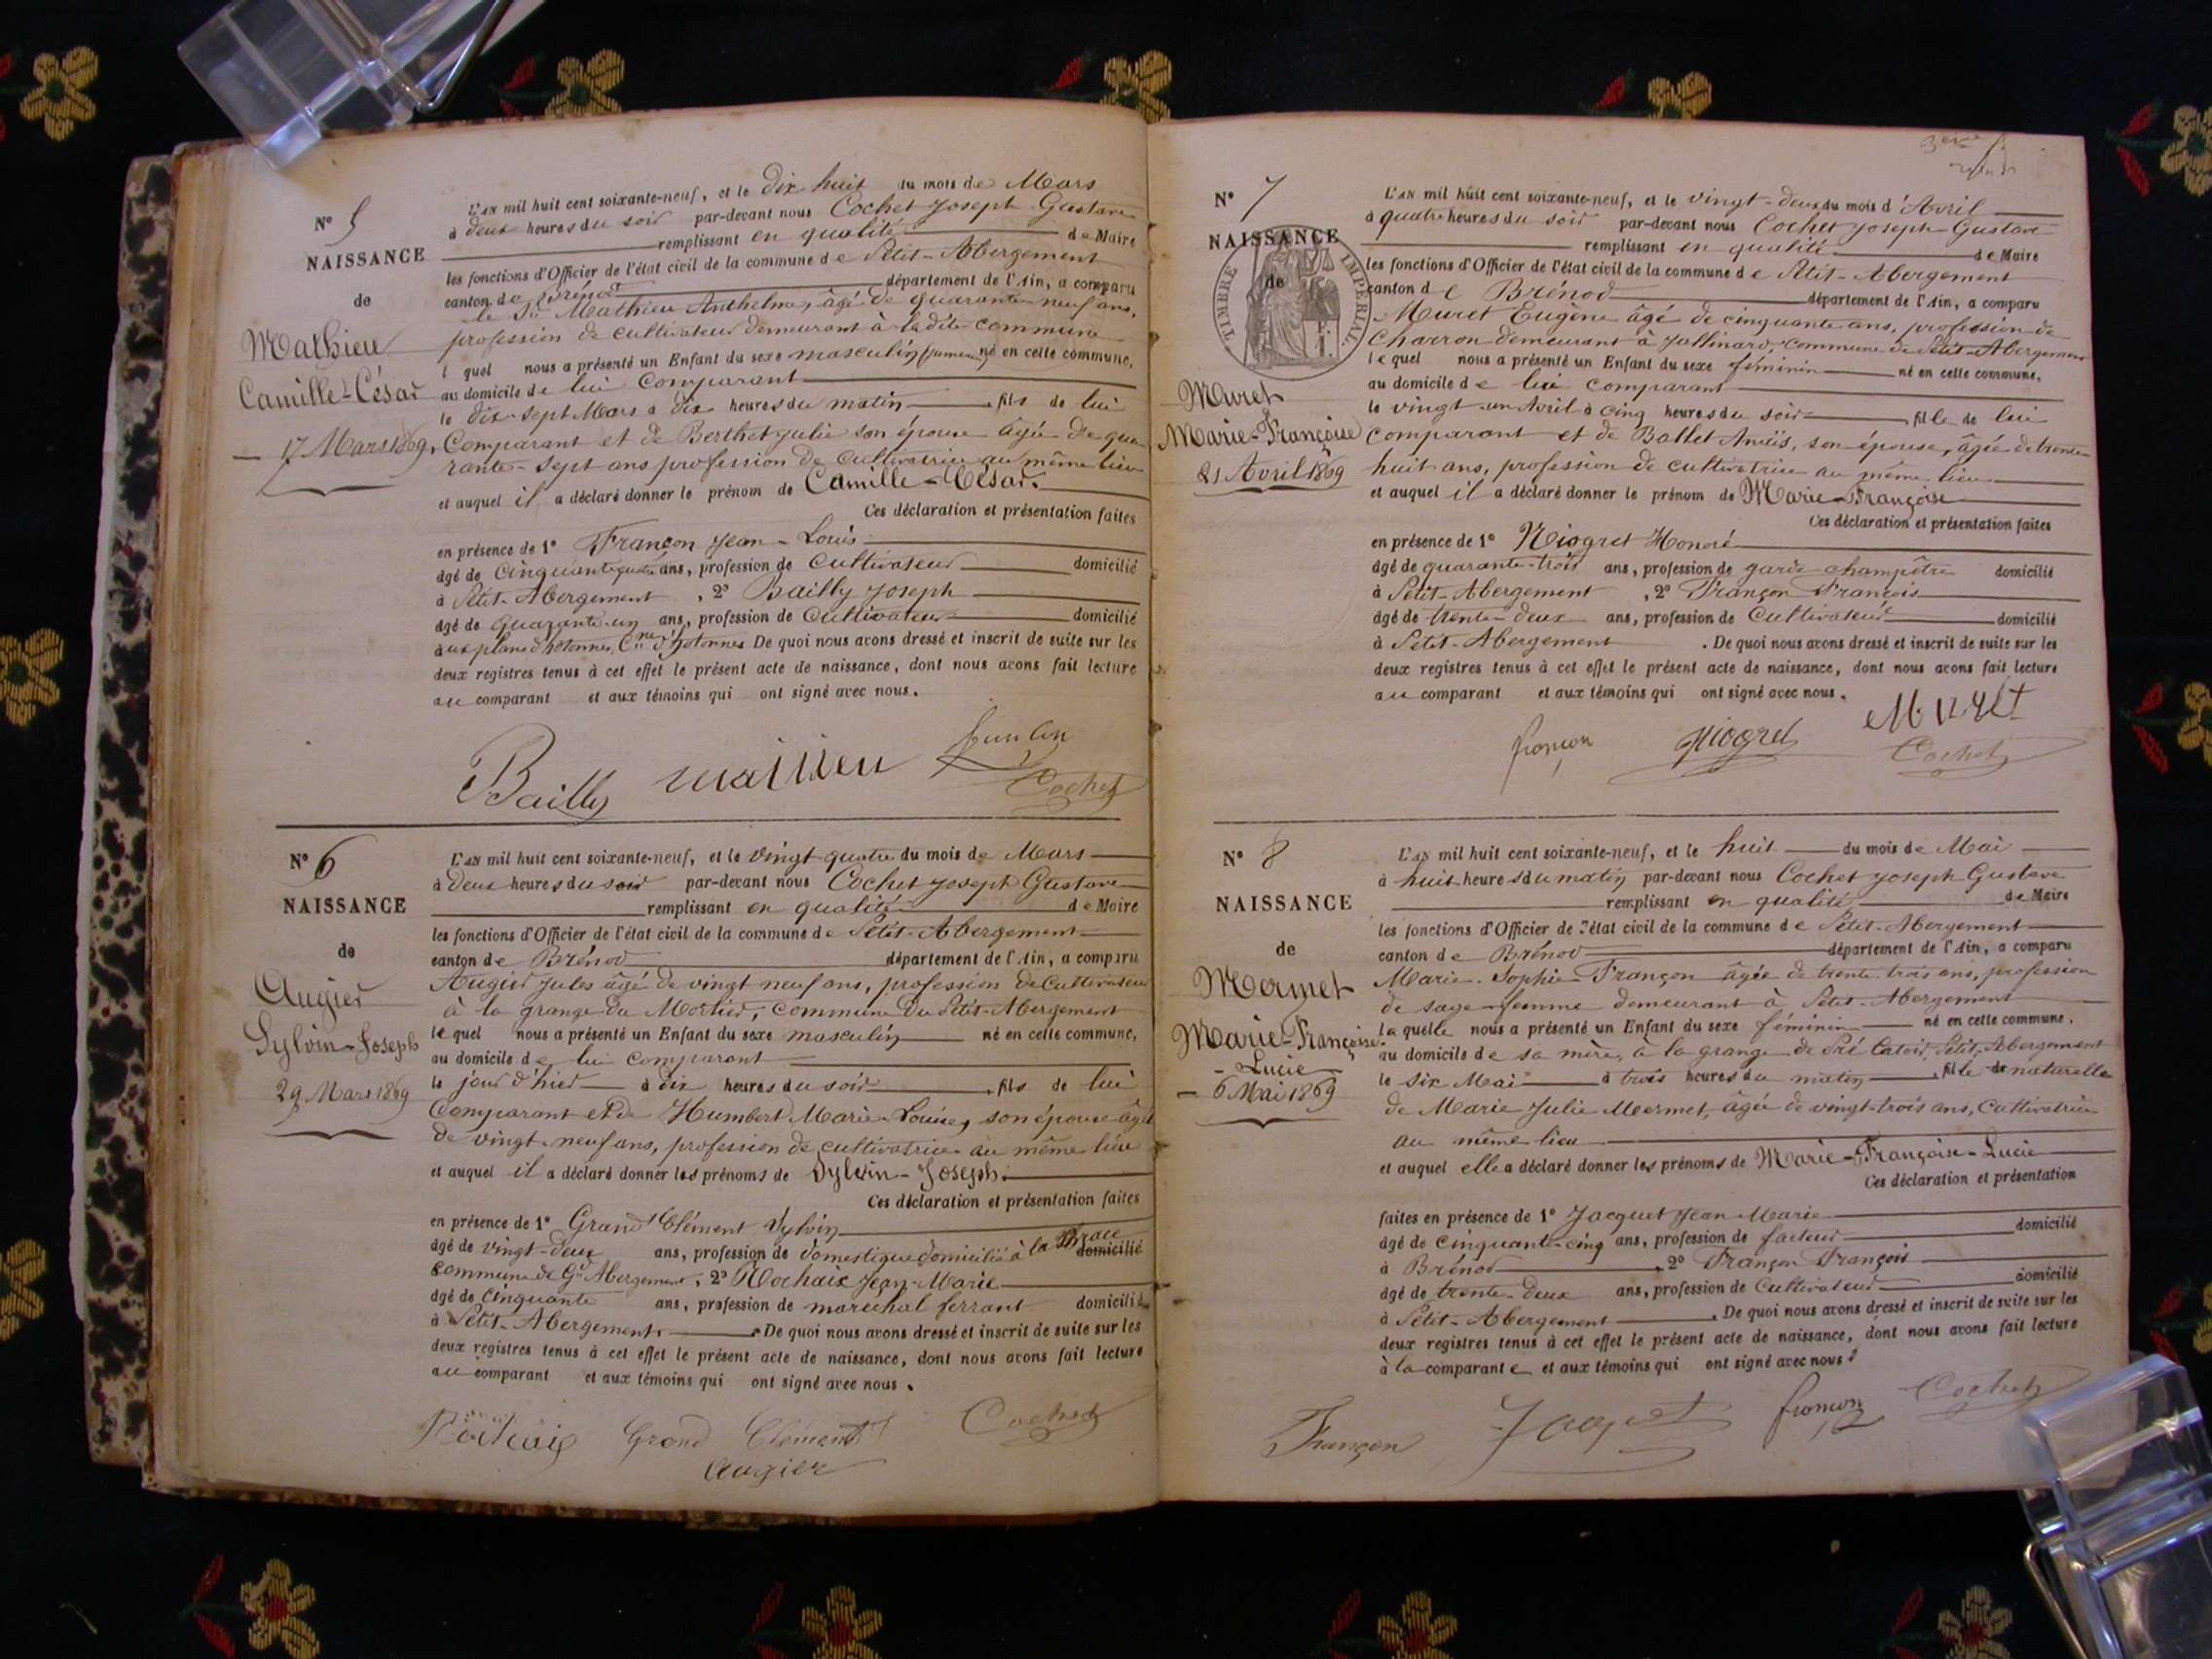 N° 5
NAISSANCE
de
Mathieu
Camille-César
17 Mars 1869.
L'AN mil huit cent soixante-neuf, et le dix huit du mois de Mars
à deux heures du soir par-devant nous Cochet Joseph Gustave
remplissant en qualité de Maire
les fonctions d'Officier de l'état civil de la commune de Petit-Abergement
canton de Brénod département de l'Ain, a comparu
le Sr Mathieu Anthelme, âgé de quarante neuf ans,
profession de cultivateur demeurant à la dite commune
lequel nous a présenté un Enfant du sexe masculin (jumeau) né en cette commune,
au domicile de lui comparant
le dix-sept Mars à dix heures du matin fils de lui
Comparant et de Berthet Julie son épouse âgée de qua
rante-sept ans profession de cultivatrice au même lieu
et auquel il a déclaré donner le prénom de Camille-César.
Ces déclaration et présentation faites
en présence de 1° Françon Jean-Louis
âgé de cinquante quatre ans, profession de cultivateur domicilié
à Petit-Abergement, 2° Bailly Joseph
âgé de quarante-un ans, profession de cultivateur domicilié
aux plans d'hotonnes, Cne d'hotonnes De quoi nous avons dressé et inscrit de suite sur les
deux registres tenus à cet effet le présent acte de naissance, dont nous avons fait lecture
au comparant et aux témoins qui ont signé avec nous.
Bailly mathieu
Cochet
N° 6
NAISSANCE
de
Augier
Sylvin-Joseph
29 Mars 1869
L'AN mil huit cent soixante-neuf, et le vingt quatre du mois de Mars
à deux heures du soir par-devant nous Cochet Joseph Gustave
remplissant en qualité de Maire
les fonctions d'Officier de l'état civil de la commune de Petit-Abergement
canton de Brénod département de l'Ain, a comparu
Augier Jules âgé de vingt neuf ans, profession de cultivateur
à la grange du Mortier, commune du Petit-Abergement
lequel nous a présenté un Enfant du sexe masculin né en cette commune,
au domicile de lui comparant
le jour d'hier à dix heures du soir fils de lui
Comparant et de Humbert Marie Louise, son épouse âgée
de vingt-neuf ans, profession de cultivatrice au même lieu
et auquel il a déclaré donner les prénoms de Sylvin-Joseph.
Ces déclaration et présentation faites
en présence de 1° Grand Clément Sylvin
âgé de vingt-deux ans, profession de domestique domicilié à la domicilié
commune de Gd Abergement, 2° Rochaix Jean-Marie
âgé de cinquante ans, profession de maréchal ferrant domicilié
à Petit-Abergement. De quoi nous avons dressé et inscrit de suite sur les
deux registres tenus à cet effet le présent acte de naissance, dont nous avons fait lecture
au comparant et aux témoins qui ont signé avec nous.
Rochaix Grand Clément Cochet
Augier
N° 7
NAISSANCE
de
TIMBRE IMPERIAL.
Muret
Marie-Françoise
21 Avril 1869
L'AN mil huit cent soixante-neuf, et le vingt-deux du mois d'Avril
à quatre heures du soir par-devant nous Cochet Joseph Gustave
remplissant en qualité de Maire
les fonctions d'Officier de l'état civil de la commune de Petit-Abergement
canton de Brénod département de l'Ain, a comparu
Muret Eugène âgé de cinquante ans, profession de
Charron demeurant à Jallinard, commune de Petit-Abergement
lequel nous a présenté un Enfant du sexe féminin né en cette commune,
au domicile de lui comparant
le vingt-un Avril à cinq heures du soir, fille de lui
comparant et de Ballet Anaïs, son épouse, âgée de trente
huit ans, profession de cultivatrice au même lieu
et auquel il a déclaré donner le prénom de Marie-Françoise
Ces déclaration et présentation faites
en présence de 1° Niogret Honoré
âgé de quarante-trois ans, profession de garde champêtre domicilié
à Petit-Abergement, 2° Françon François
âgé de trente-deux ans, profession de cultivateur domicilié
à Petit-Abergement. De quoi nous avons dressé et inscrit de suite sur les
deux registres tenus à cet effet le présent acte de naissance, dont nous avons fait lecture
au comparant et aux témoins qui ont signé avec nous.
françon Niogret Muret
Cochet
N° 8
NAISSANCE
de
Mermet
Marie-Françoise-
-Lucie
6 Mai 1869
L'AN mil huit cent soixante-neuf, et le huit du mois de Mai
à huit heures du matin par-devant nous Cochet Joseph Gustave
remplissant en qualité de Maire
les fonctions d'Officier de l'état civil de la commune de Petit-Abergement
canton de Brénod département de l'Ain, a comparu
Marie-Sophie Françon âgée de trente trois ans, profession
de sage-femme demeurant à Petit-Abergement
laquelle nous a présenté un Enfant du sexe féminin né en cette commune,
au domicile de sa mère, à la grange de Pré Catoir, Petit-Abergement
le six Mai à trois heures du matin, fille de naturelle
de Marie Julie Mermet, âgée de vingt-trois ans, cultivatrice
au même lieu
et auquel elle a déclaré donner les prénoms de Marie-Françoise-Lucie
Ces déclaration et présentation
faites en présence de 1° Jacquet Jean Marie
âgé de cinquante-cinq ans, profession de facteur domicilié
à Brénod, 2° Françon François
âgé de trente-deux ans, profession de cultivateur domicilié
à Petit-Abergement. De quoi nous avons dressé et inscrit de suite sur les
deux registres tenus à cet effet le présent acte de naissance, dont nous avons fait lecture
à la comparante et aux témoins qui ont signé avec nous.
Françon Jacquet françon Cochet